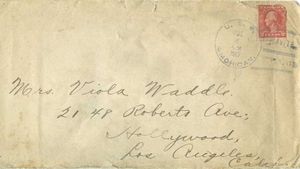 U. S.
MICHIGAN
Mrs. Viola Waddle.
2148 Roberts Ave;
Hollywood,
Los Angeles,
Calif